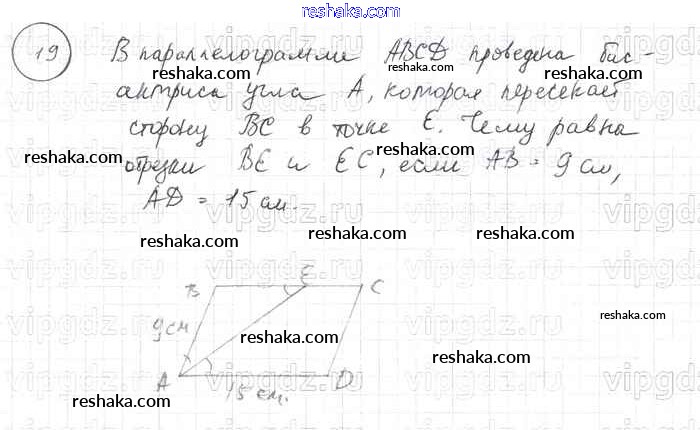 reshaka.com
19 В параллелограмме ABCD проведена бис-
reshaka.com reshaka.com reshaka.com
сектриса угла A, которая пересекает
сторону BC в точке E. Чему равна
reshaka.com
отрезки BE и EC, если AB = 9 см,
reshaka.com reshaka.com
AD = 15 см.
reshaka.com reshaka.com reshaka.com
B E C
9 см
reshaka.com
reshaka.com
A 15 см. D
reshaka.com reshaka.com
reshaka.com